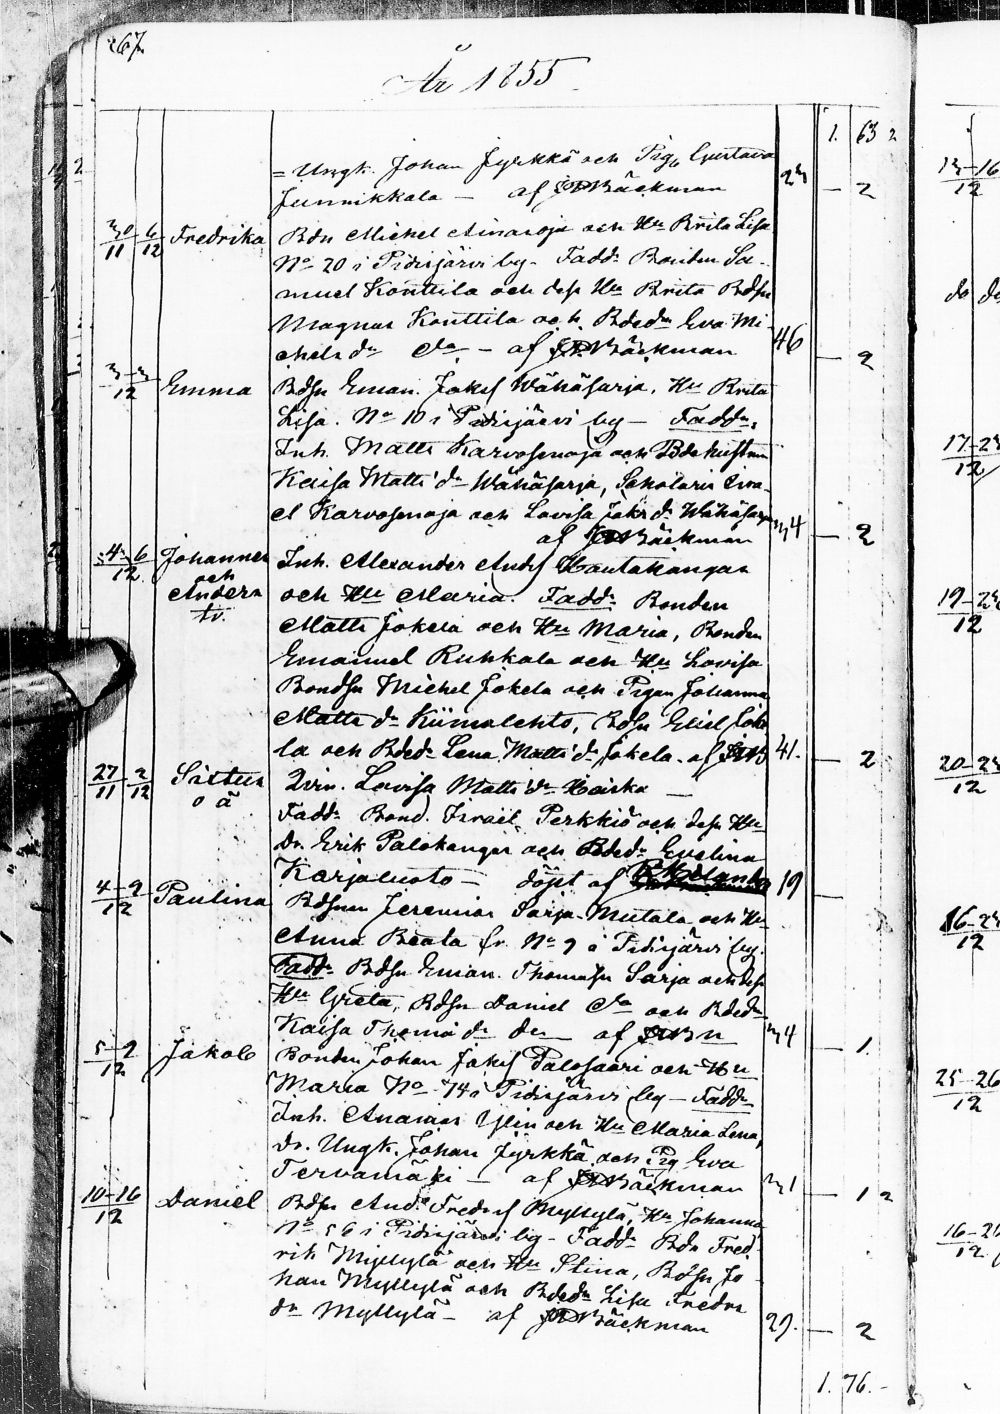 267.
År 1855
1. 63 2
= Ungk. Johan Jyrkkä och Pig. Gustava
Junnikkala — af Bäckman 23 — 2
30/11 6/12 Fredrika Bdn Michel Ainasoja och Hu Brita Lisa
No 20 i Pidisjärvi by - Fadd. Bonden Sa-
muel Konttila och dess Hu Brita Bdsn
Magnus Konttila och Bdedr Eva Mi-
chels dr — af Bäckman 46 — 2
3-3/12 Emma Bdsn Eman. Jakss Wähäsarja, Hu Brita
Lisa. No 10 i Pidisjärvi by — Fadd.
Inh. Matts Karvosenoja och Bdehustrun
Kaisa Matts dr Wähäsarja,
Karvosenoja och Lovisa Jaks dr Wähäsarja 34 — 2
af Bäckman
4-6/12 Johannes Inh. Alexander Anders Hautakangas
och
Anders och Hu Maria. Fadd. Bonden
tv.
Matts Jokela och Hu Maria, Bonden
Emanuel Ruhkala och Hu Lovisa
Bondsn Michel Jokela och Pigan Johanna
Matts dr Kiimalehto, Bdsn Joke-
la och Bdedr Lena Matts dr Jokela. af 41. — 2
27/11 2/12 Sixtus Qvin. Lovisa Matts dr —
o ä
Fadd. Bond. Israel Perkkiö och dess Hu
Dr. Erik Palokangas och Bdedr Evelina
Karjaluoto — döpt af 19 —
4-9/12 Paulina Bdsnn Jeremias Sarja-Mutala och Hu
Anna Beata fr. No 9 i Pidisjärvi by.
Fadd. Bdsn Eman. Thomass Sarja och dess
Hu Greta, Bdsn Daniel och Bdedr
Kaisa Thoma dr af 34 — 1.
5-9/12 Jakob Bonden Johan Jakss Palosaari och Hu
Maria No 74 i Pidisjärvi by — Fadd.
Inh. Ylin och Hu Maria Lena,
Dr. Ungk. Johan Jyrkkä och Pig Eva
Tervamäki — af Bäckman 31 — 1 2
10-16/12 Daniel Bdsn And. Fredrs Myllylä, Hu Johanna
No 56 i Pidisjärvi by - Fadd. Bdn Fred-
rik Myllylä och Hu Stina, Bdsn Jo-
han Myllylä och Bdedr Lisa Fredrs
dr Myllylä — af Bäckman 29. — 2
1. 76. -
13-16/12
do do
17-23/12
19-23/12
20-23/12
16-23/12
25-26/12
16-26/12